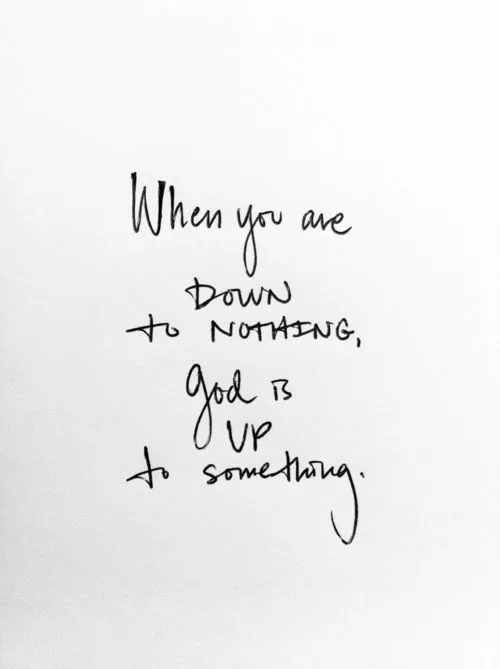 When you are
DOWN
to NOTHING,
God is
UP
to something.